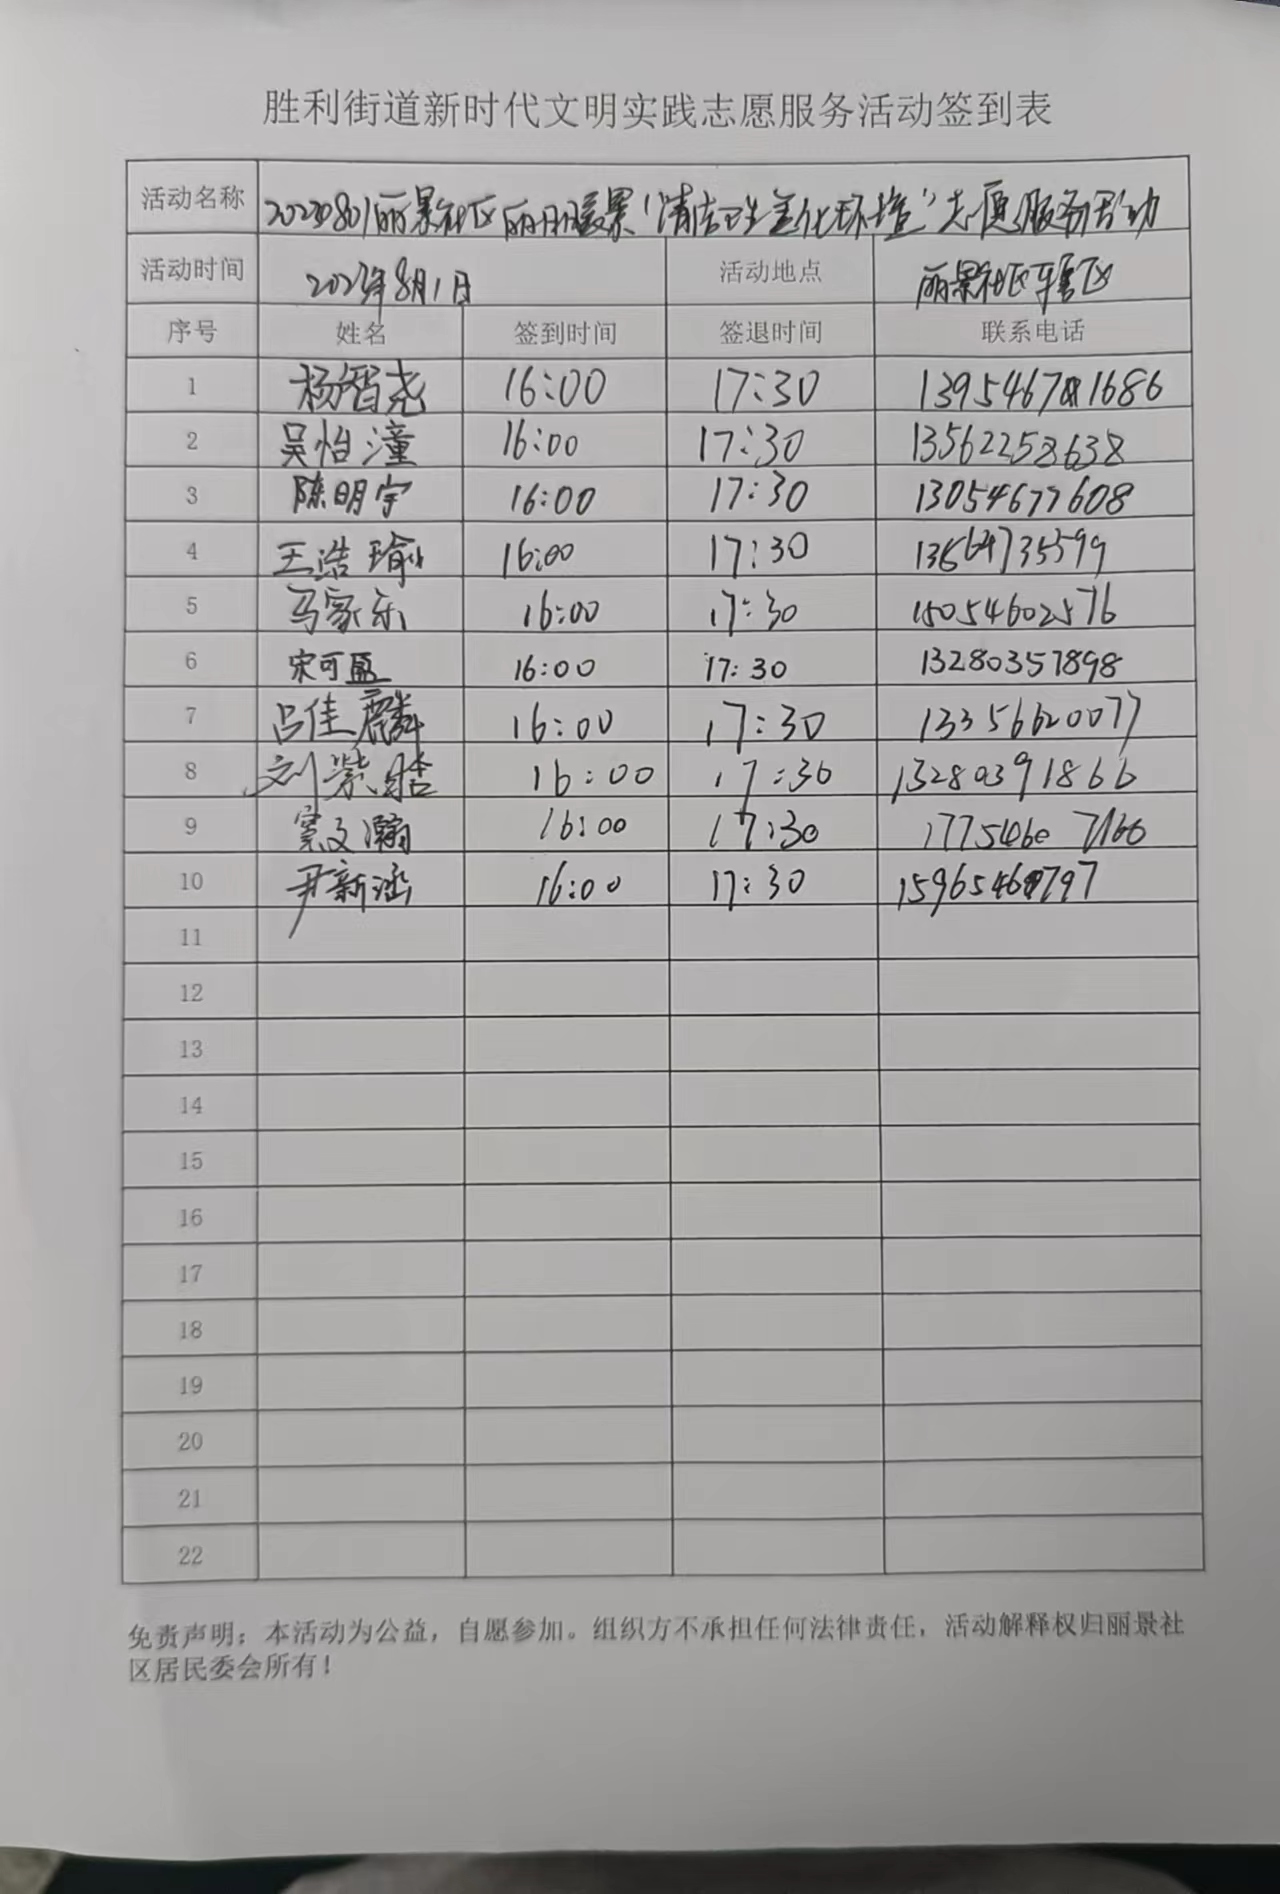 胜利街道新时代文明实践志愿服务活动签到表
活动名称 20230801丽景社区丽丽暖景“清洁卫生美化环境”志愿服务活动
活动时间 2023年8月1日 活动地点 丽景社区辖区
序号 姓名 签到时间 签退时间 联系电话
1 杨智尧 16:00 17:30 13954671686
2 吴怡潼 16:00 17:30 13562258638
3 陈明宇 16:00 17:30 13054677608
4 王浩瑜 16:00 17:30 13664735599
5 马家乐 16:00 17:30 15054602576
6 宋可盈 16:00 17:30 13280357898
7 吕佳麟 16:00 17:30 13356620077
8 刘紫晗 16:00 17:30 13280391866
9 窦文瀚 16:00 17:30 17754607166
10 尹新涵 16:00 17:30
11
12
13
14
15
16
17
18
19
20
21
22
免责声明：本活动为公益，自愿参加。组织方不承担任何法律责任，活动解释权归丽景社
区居民委会所有！